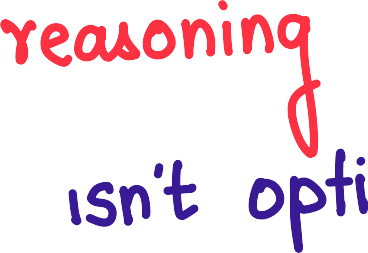 reasoning
isn't opti